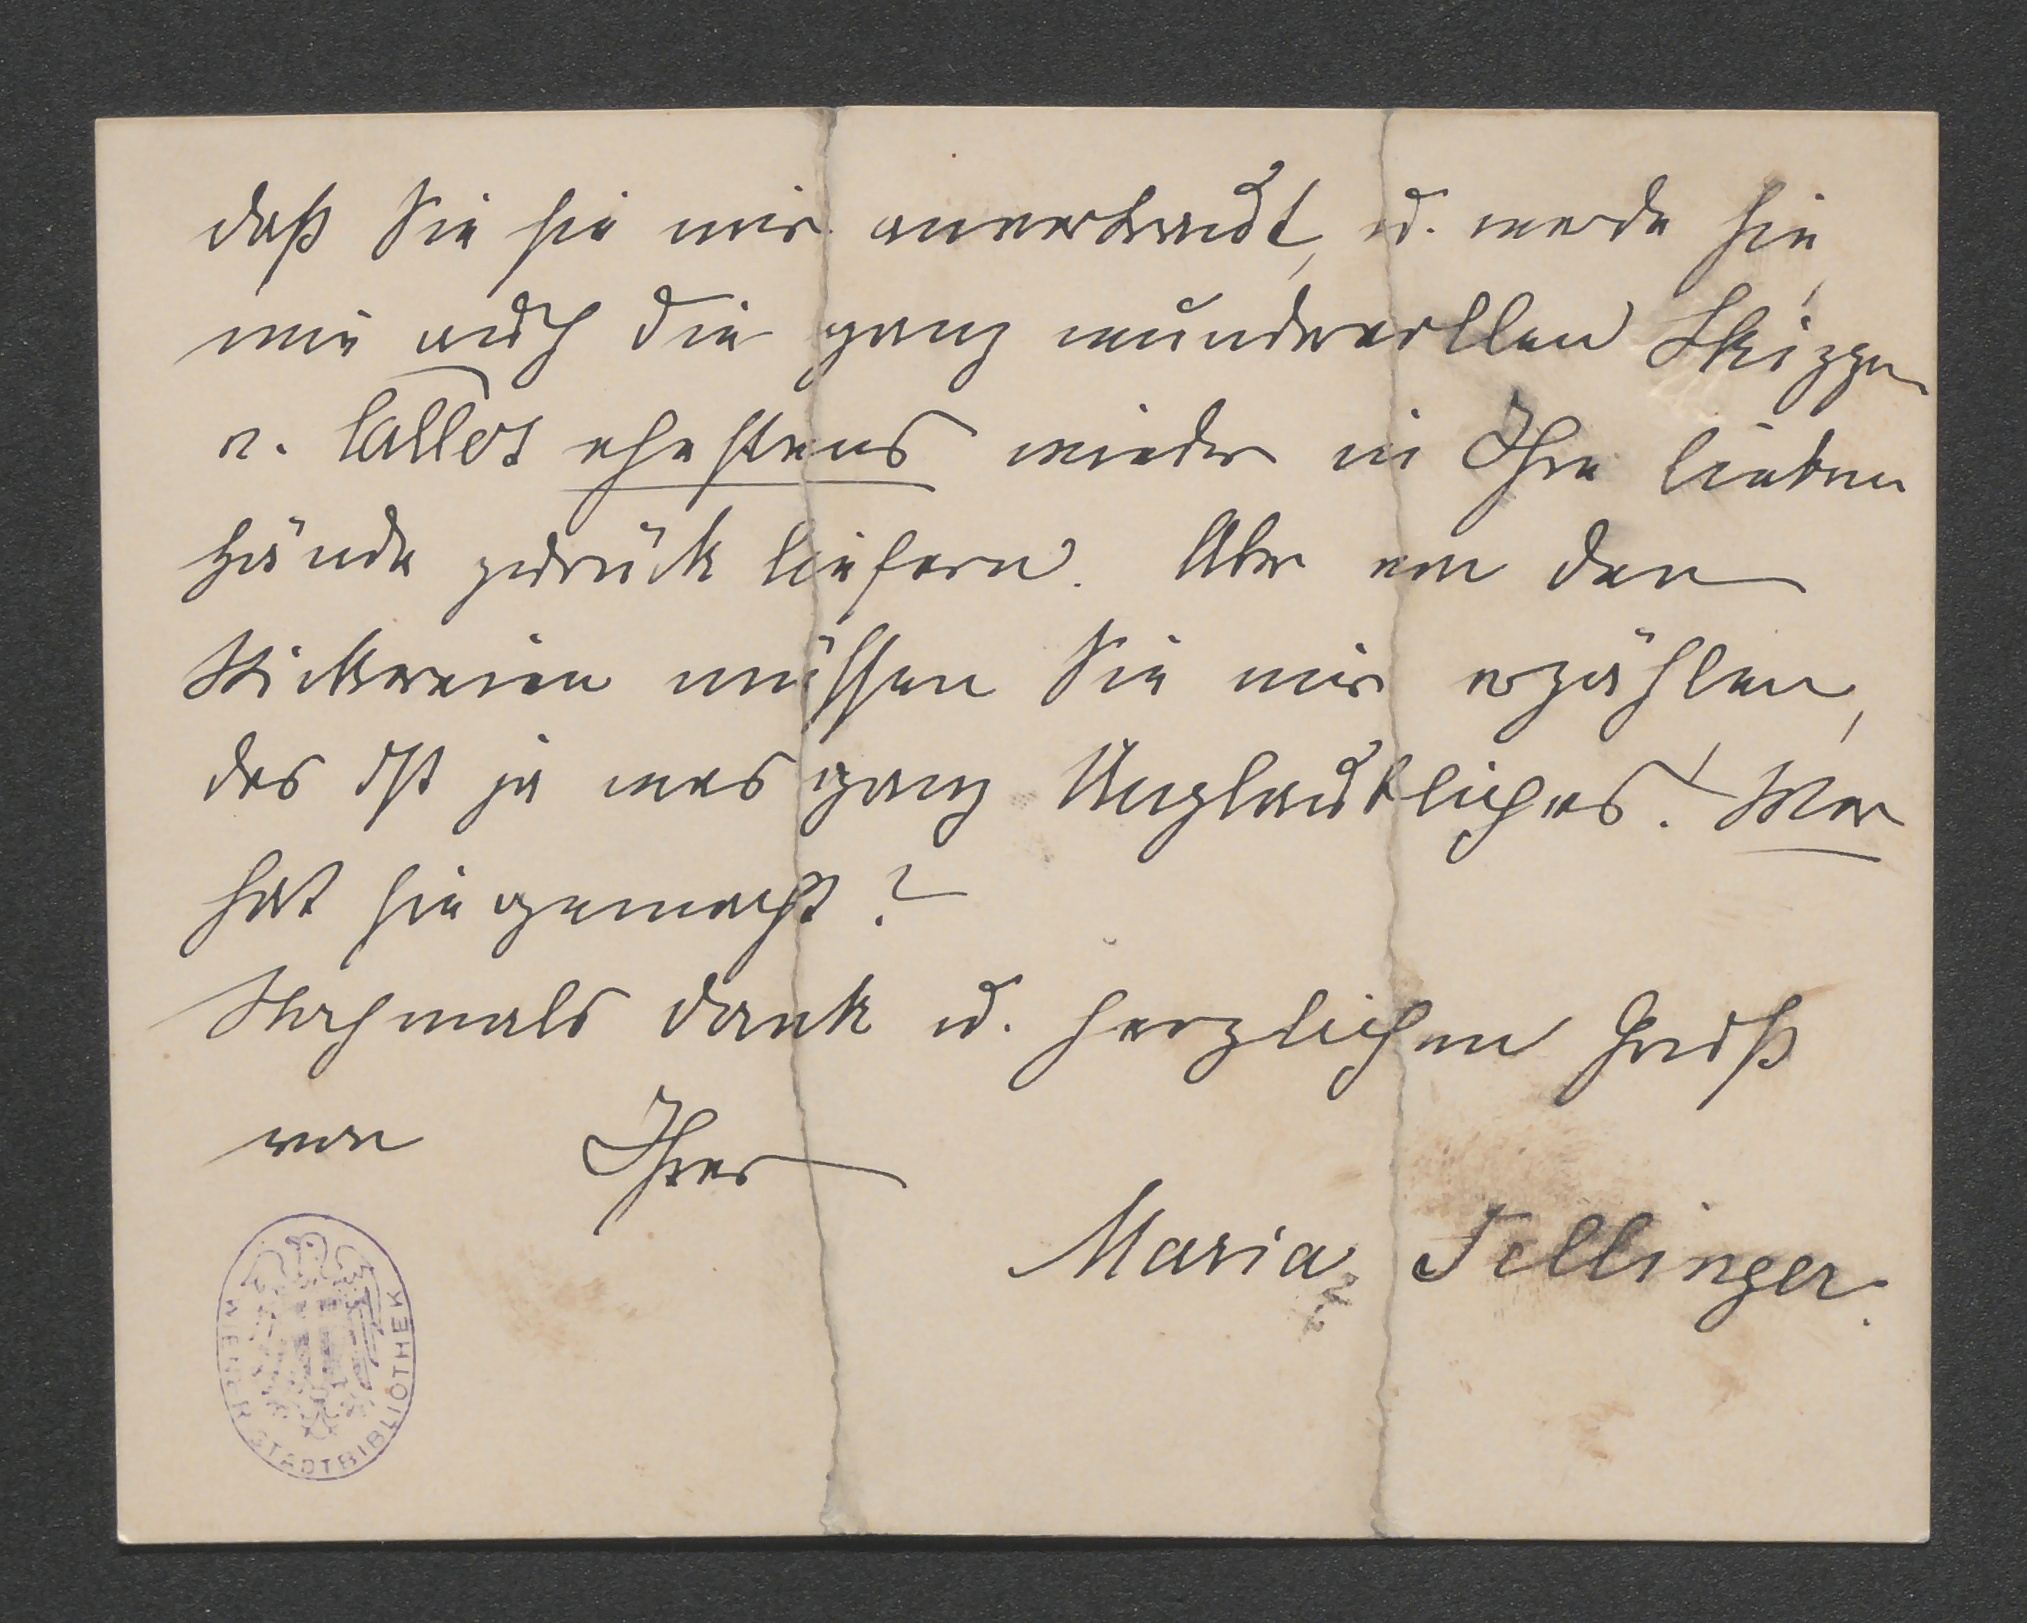 daß Sie sie mir anvertraut, u. werde sie,
wie auch die ganz wundervollen Skizzen
v. Callot ehestens wieder in Ihre lieben
Hände zurück liefern. Aber von den
Stickereien müssen Sie mir erzählen,
das ist ja was ganz Unglaubliches! Wer
hat sie gemacht?
Nochmals Dank u. herzlichen Gruß
von Ihrer
Maria Fellinger.
WIENER STADTBIBLIOTHEK